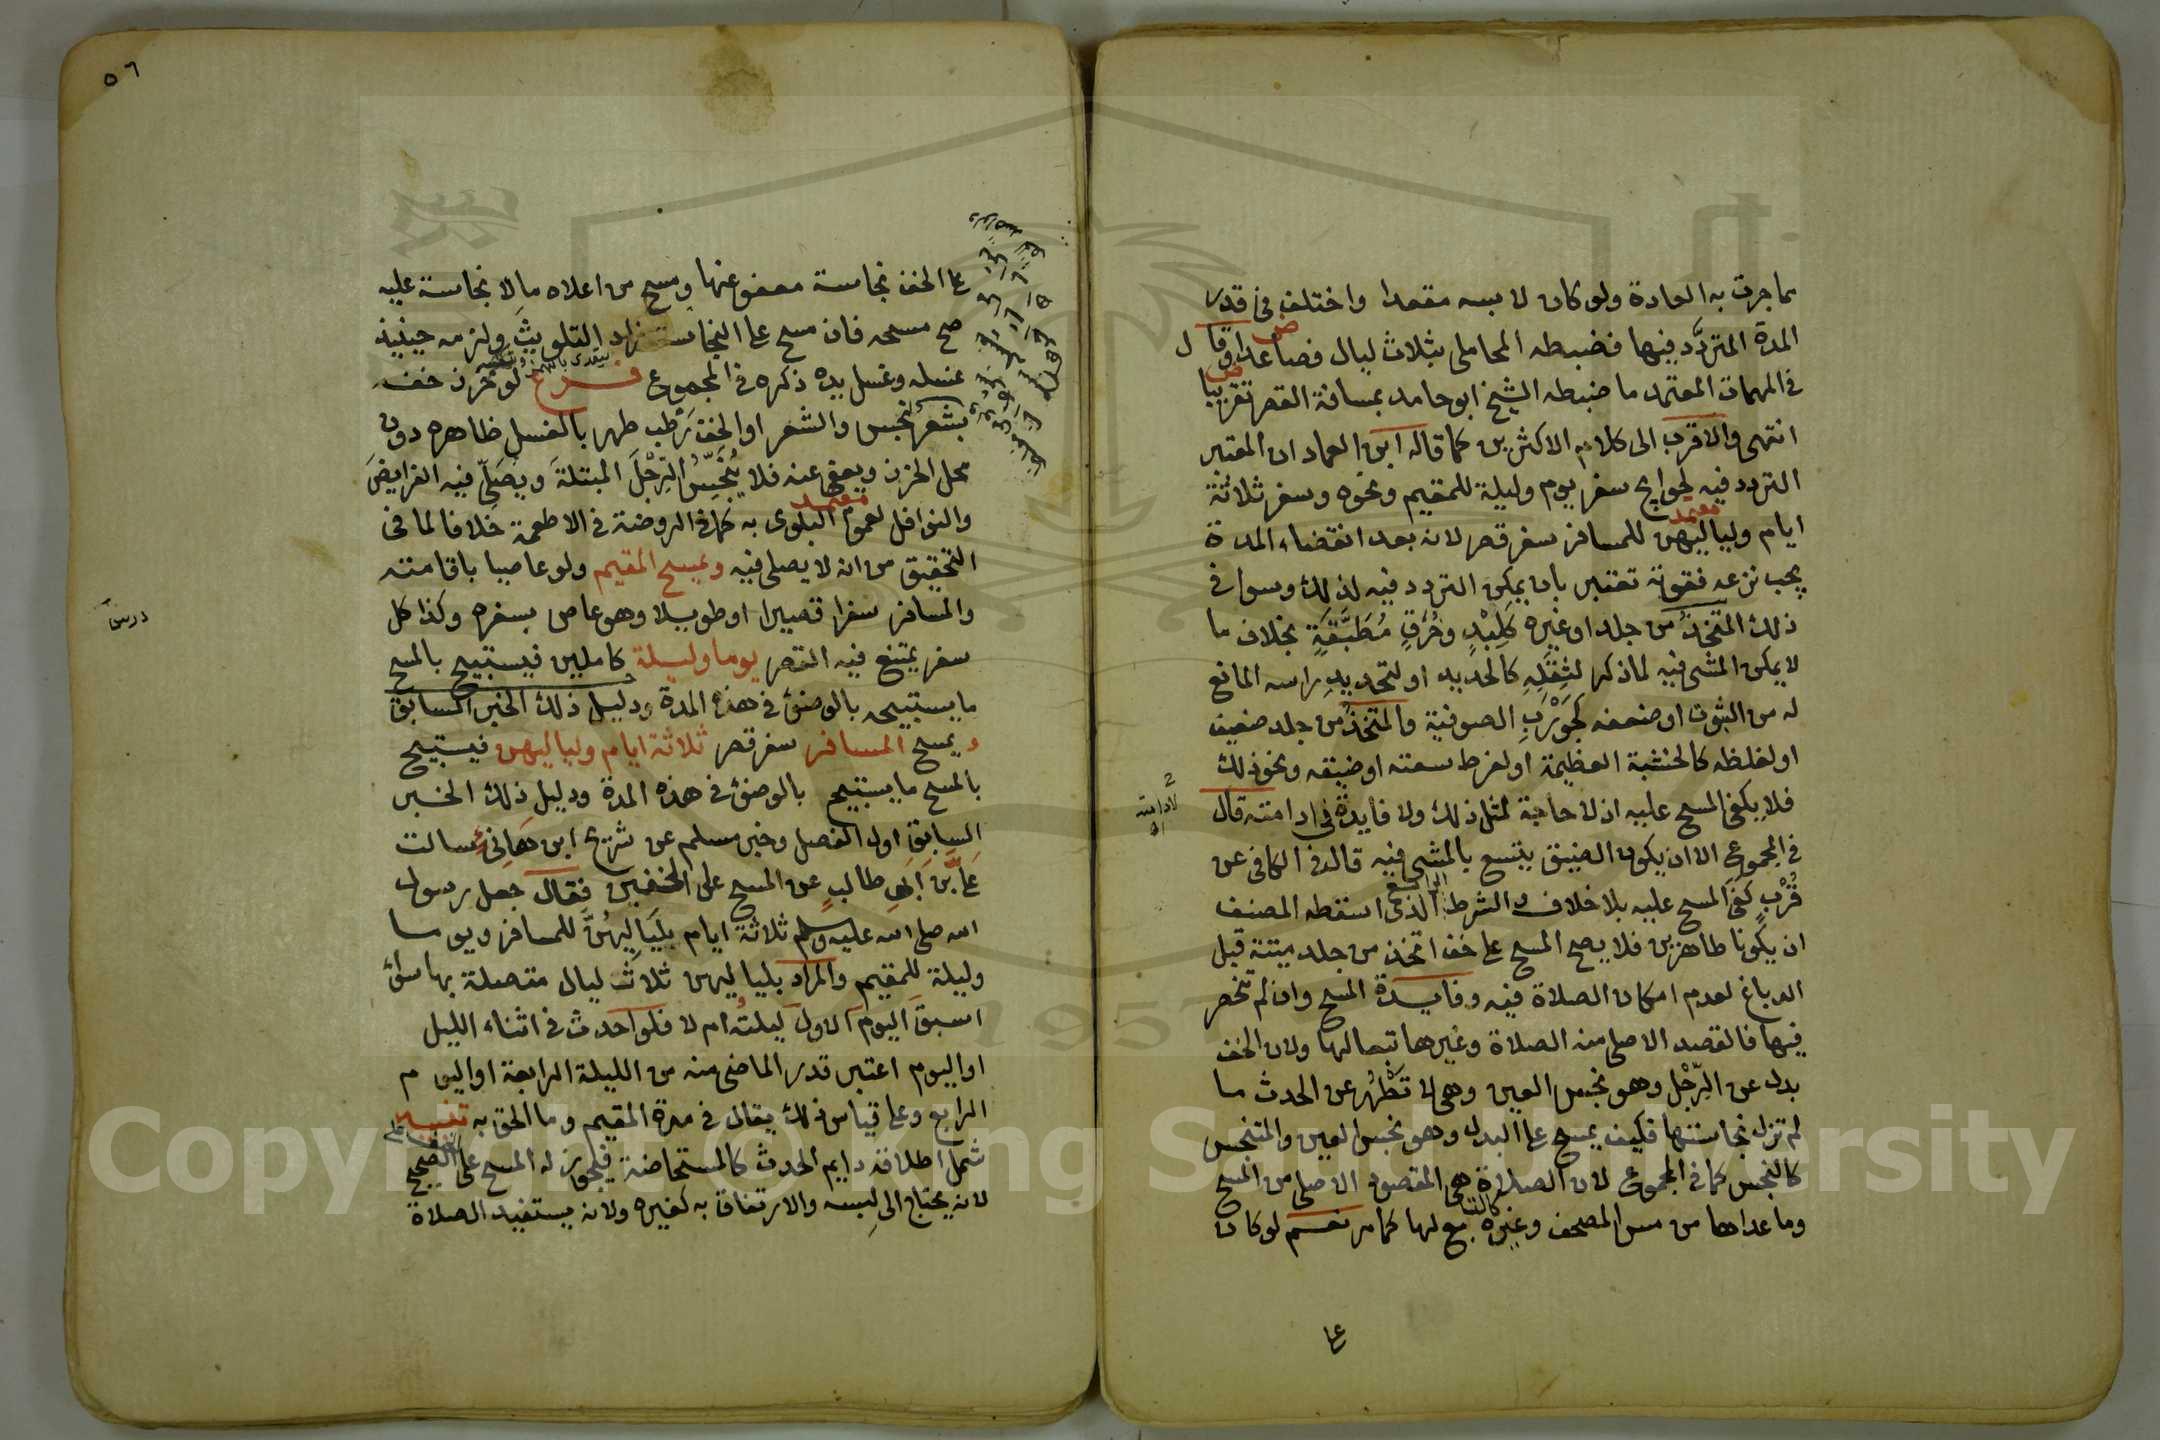 بما جرت به العادة ولو كان لابسه مقعدا واختلف في قدر
المدة المتردَّد فيها فضبطه المحاملي بثلاث ليال فصاعدا وقال
في المهمات المعتمد ما ضبطه الشيخ ابو حامد بمسافة القصر تقريبا
انتهى والاقرب الى كلام الاكثرين كما قاله ابن العماد ان المعتبر
التردد فيه لحوايج سفر يوم وليلة للمقيم ونحوه وسفر ثلاثة
معتمد
ايام ولياليهن للمسافر سفر قصر لانه بعد انقضاء المدة
يجب نزعه فقوته تعتبر بان يمكن التردد فيه لذلك وسوا في
ذلك المتخذ من جلد او غيره كَلِبْدٍ وخُرَقٍ مُطَبَّقَةٍ بخلاف ما
لا يمكن المشي فيه لما ذكر لثِقَلِهِ كالحديد او لتحديد راسه المانع
له من الثبوت او ضعفه كجَوْرَبِ الصوفية والمتخذُ من جلد ضعيف
او لغلظه كالخشبة العظيمة او لفرط سعته او ضيقه ونحو ذلك
فلا يكفي المسح عليه اذ لا حاجة لمثل ذلك ولا فايدة في ادامته قال
لادامته
في المجموع الا ان يكون الضيق يتسع بالمشي فيه قال في الكافي عن
قُرْبٍ كَفَى المسح عليه بلا خلاف و الشرط الرابع الذي اسقطه المصنف
ان يكونا طاهرين فلا يصح المسح على خف اتخذ من جلد ميتة قبل
الدباغ لعدم امكان الصلاة فيه وفايدة المسح وان لم تنحصر
فيها فالقصد الاصلي منه الصلاة وغيرها تبعا لها ولان الخف
بدل عن الرِّجْل وهو نجس العين وهي لا تَطْهُر عن الحدث ما
لم تزل نجاستها فكيف يمسح على البدل وهو نجس العين والمتنجس
كالنجس كما في المجموع لان الصلاة هي المقصود الاصلي من المسح
وما عداها من مس المصحف وغيره كالتبع لها كما مر نعم لو كان
على
٥٦
على الخف نجاسة معفو عنها ومسح من اعلاه ما لا نجاسة عليه
صح مسحه فان مسح على النجاسة زاد التلويث ولزمه حينيذ
غسله وغسل يده ذكره في المجموع فرع لو خرز خفه
بشعر نجس والشعر او الخف رَطْب طهر بالغسل ظاهره دون
محل الخرز ويعفى عنه فلا يُنَجِّسُ الرِّجْلَ المبتلةَ ويُصَلِّي فيه الفرايضَ
معتمد
والنوافل لعموم البلوى به كما في الروضة في الاطعمة خلافا لما في
التحقيق من انه لا يصلي فيه ويمسح المقيم ولو عاصيا باقامته
والمسافر سفرا قصيرا او طويلا وهو عاص بسفره وكذا كل
درس
سفر يمتنع فيه القصر يوما وليلة كاملين فيستبيح بالمسح
ما يستبيحه بالوضوء في هذه المدة ودليل ذلك الخبر السابق
و يمسح المسافر سفر قصر ثلاثة ايام ولياليهن فيستبيح
بالمسح ما يستبيح بالوضوء في هذه المدة ودليل ذلك الخبر
السابق اول الفصل وخبر مسلم عن شريح ابن هَانِئ سالت
عَلِيَّ بْنَ اَبِي طالبٍ عن المسح على الخفين فقال جعل رسول
الله صلى الله عليه وسلم ثلاثة ايام بلَيَاليهُنَّ للمسافر ويوما
وليلة للمقيم والمراد بلياليهن ثلاث ليال متصلة بها سواء
اسبق اليوم الاول ليلته ام لا فلو احدث في اثناء الليل
او اليوم اعتبر قدر الماضي منه من الليلة الرابعة او اليوم
الرابع وعلى قياس ذلك يقال في مدة المقيم وما الحق به تنبيه
شمل اطلاقه دايم الحدث كالمستحاضة فيجوز له المسح على الصحيح
لانه يحتاج الى لبسه والارتفاق به كغيره ولانه يستفيد الصلاة